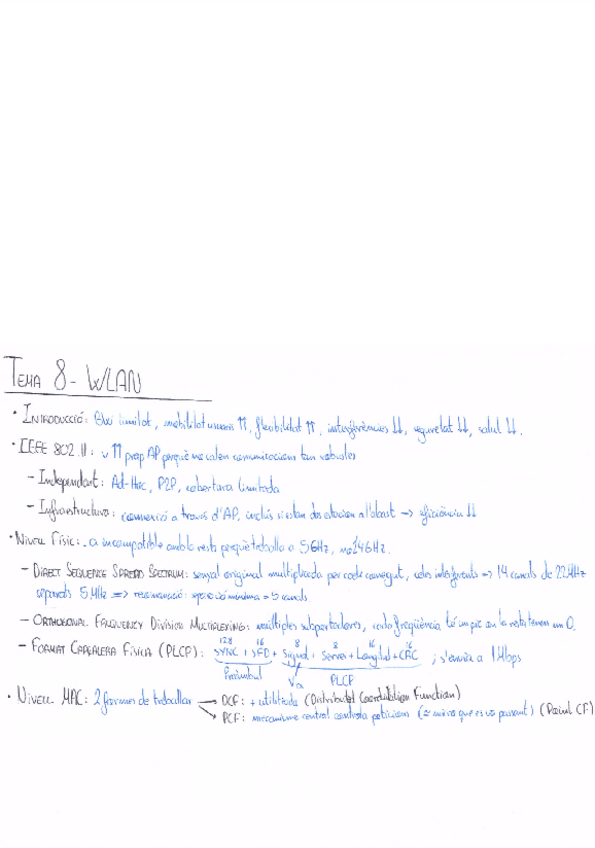 TEMA 8 - WLAN
• INTRODUCCIÓ: BW limitat, mobilitat usuaris ↑↑, flexibilitat ↑↑, interferències ↓↓, seguretat ↓↓, salut ↓↓.
• IEEE 802.11: v ↑↑ prop AP perquè no calen comunicacions tan robustes
- Independent: Ad-Hoc, P2P, cobertura limitada
- Infraestructura: connexió a través d'AP, inclús si estan dos estacions a l'abast → eficiència ↓↓
• NIVELL FÍSIC: a incompatible amb la resta perquè treballa a 5GHz, no 2'4GHz.
- DIRECT SEQUENCE SPREAD SPECTRUM: senyal original multiplicada per codi conegut, => 14 canals de 22MHz
separats 5MHz => separació mínima = 5 canals
- ORTHOGONAL FREQUENCY DIVISION MULTIPLEXING: múltiples subportadores, cada freqüència té un pic on la resta tenen un 0.
- FORMAT CAPÇALERA FÍSICA (PLCP): SYNC + SFD + Signal + Service + Longitud + CRC ; s'envia a 1Mbps
128 16 8 8 16 16
Preàmbul Vtx PLCP
• NIVELL MAC: 2 formes de treballar → DCF: + utilitzada (Distributed Coordination Function)
→ PCF: mecanisme central controla peticions (Point CF)